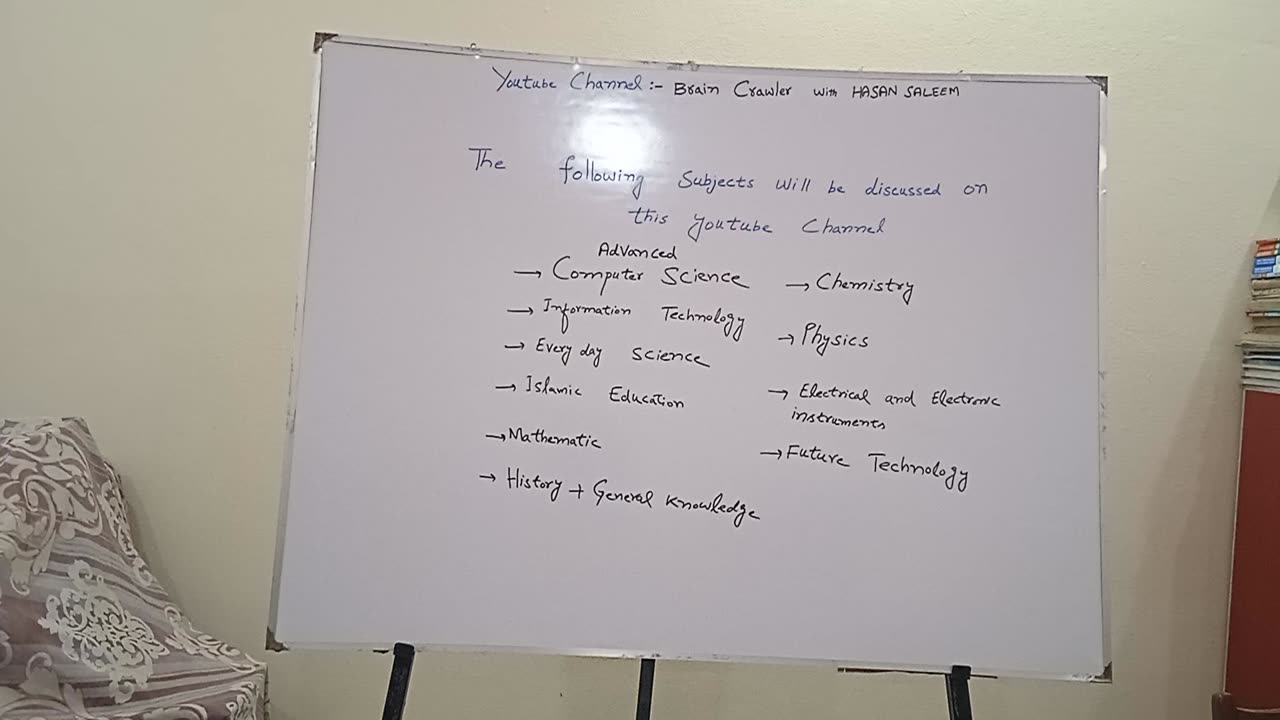 Youtube Channel :- Brain Crawler with HASAN SALEEM
The following Subjects will be discussed on
this youtube Channel
Advanced
→ Computer Science
→ Information Technology
→ Every day science
→ Islamic Education
→ Mathematic
→ History + General knowledge
→ Chemistry
→ Physics
→ Electrical and Electronic
instruments
→ Future Technology